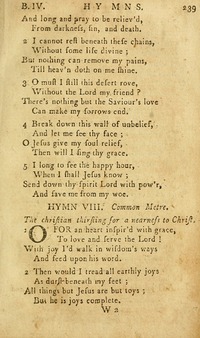 B. IV. HYMNS. 239
And long and pray to be reliev'd,
From darkness, sin, and death.
2 I cannot rest beneath these chains,
Without some life divine;
But nothing can remove my pains,
Till heav'n doth on me shine.
3 O must I still this desert rove,
Without the Lord my friend?
There's nothing but the Saviour's love
Can make my sorrows end.
4 Break down this wall of unbelief,
And let me see thy face;
O Jesus give my soul relief,
Then will I sing thy grace.
5 I long to see the happy hour,
When I shall Jesus know;
Send down thy spirit Lord with pow'r,
And save me from my woe.
HYMN VIII. Common Metre.
The christian thirsting for a nearness to Christ.
1 O FOR an heart inspir'd with grace,
To love and serve the Lord!
With joy I'd walk in wisdom's ways
And feed upon his word.
2 Then would I tread all earthly joys
As dust beneath my feet;
All things but Jesus are but toys;
But he is joys complete.
W 2